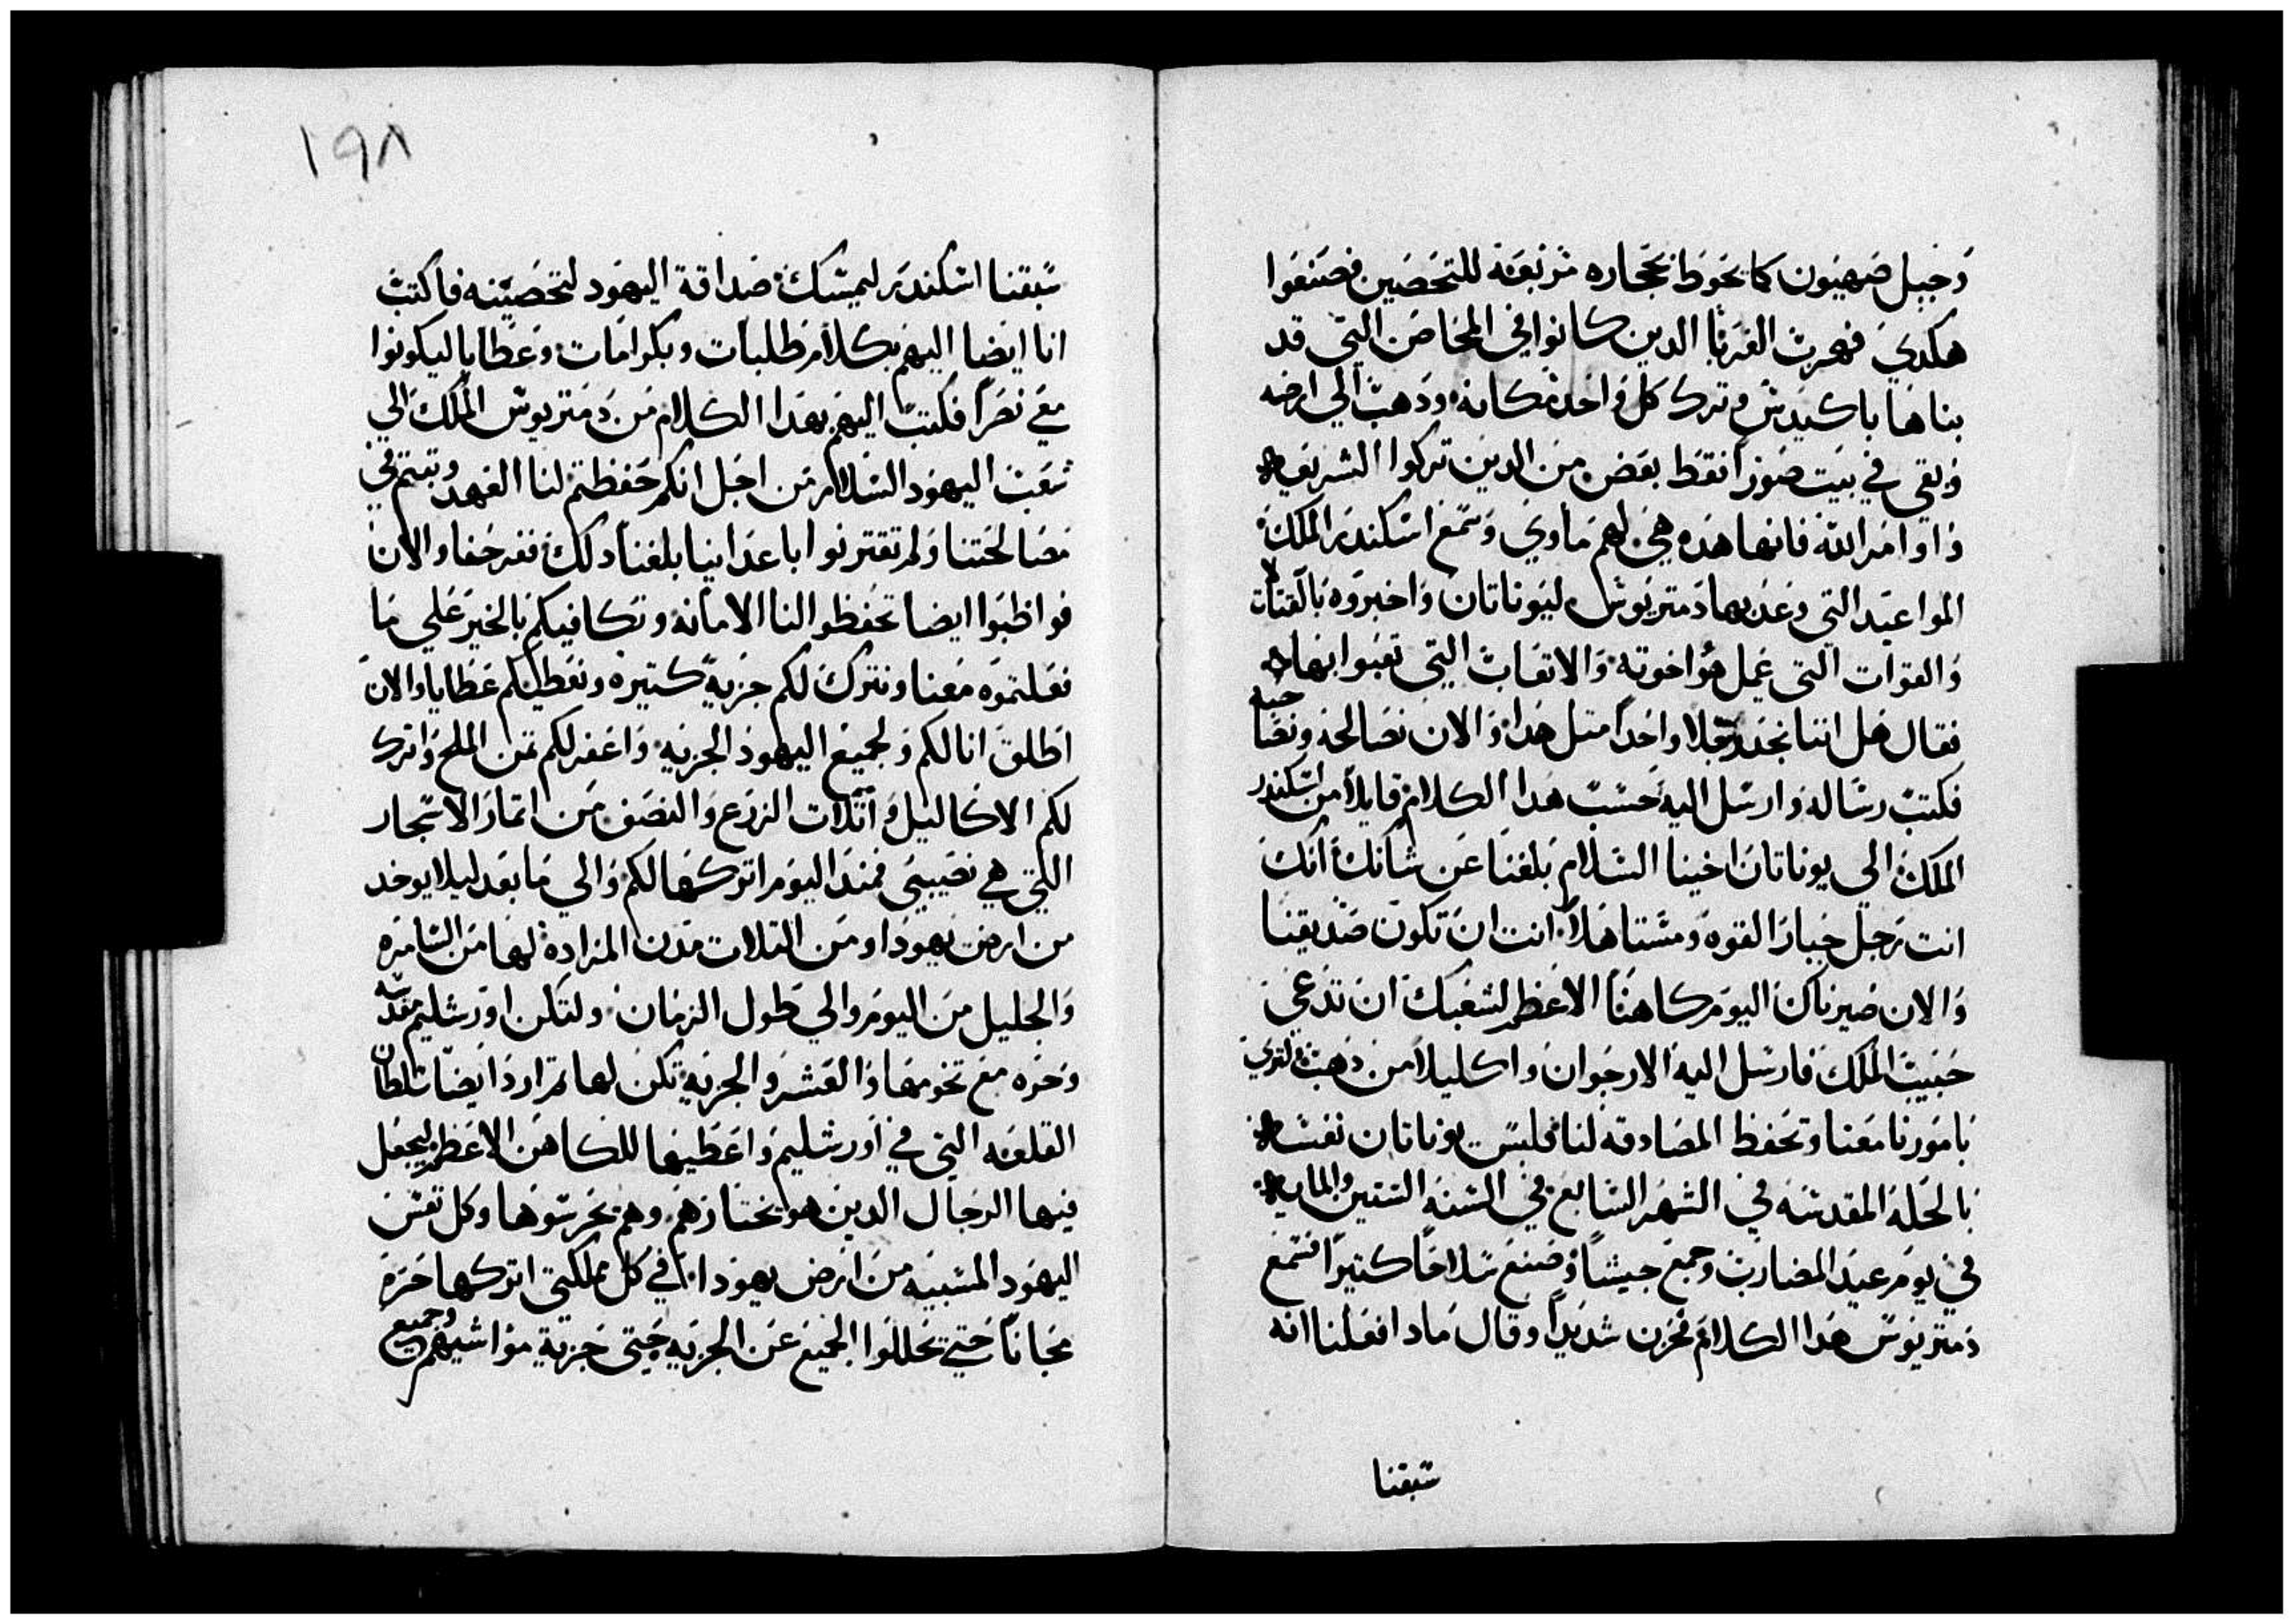 وجبل صهيون كما تحوط بحجاره مربعة للتحصين فصنعوا
هكدي فهربت الغربا الدين كانوا في المحاصن التي قد
بناها باكيدس وترك كل واحد مكانه ودهب الي ارضه
وبقي في بيت صورا فقط بعض من الدين تركوا الشريعه
واوامر الله فانها هده هي لهم ماوي وسمع اسكندر الملك
المواعيد التي وعد بها دمتريوس ليوناتان واخبروه بالقتالات
والقوات التي عمل هو واخوته والاتعاب التي تعبوا بها
فقال هل اننا نجد رجلا واحدا متل هدا والان نصالحه ونصاحبه
فكتب رساله وارسل اليه حسب هدا الكلام قايلا من اسكندر
الملك الي يوناتان اخينا السلام بلغنا عن شانك انك
انت رجل جبار القوه ومستاهلا انت ان تكون صديقنا
والان صيرناك اليوم كاهنا الاعظم لشعبك ان تدعي
حبيب الملك فارسل اليه الارجوان واكليلا من دهب لتوي
بامورنا معنا وتحفظ المصادقه لنا فلبس يوناتان نفسه
بالحلة المقدسه في الشهر السابع في السنه الستين والمايه
في يوم عيد المضارب وجمع جيشا وصنع سلاحا كتيرا فسمع
دمتريوس هدا الكلام فحزن شديدا وقال مادا فعلنا انه
سبقنا
١٩٨
سبقنا اسكندر ليمسك صداقة اليهود لتحصينه فاكتب
انا ايضا اليهم بكلام طلبات وبكرامات وعطايا ليكونوا
معي نصرا فكتب اليهم بهدا الكلام من دمتريوس الملك الي
شعب اليهود السلام من اجل انكم حفظتم لنا العهد وبقيتم في
مصالحتنا ولم تقتربوا باعداينا بلغنا دلك ففرحنا والان
فواظبوا ايضا تحفظوا لنا الامانه ونكافيكم بالخير علي ما
فعلتموه معنا ونترك لكم جزية كتيره ونعطيكم عطايا والان
اطلق انا لكم ولجميع اليهود الجزيه واغفر لكم تمن الملح واترك
لكم الاكاليل واتلات الزرع والنصف من اتمار الاشجار
اللتي هي نصيبي فمند اليوم اتركها لكم والي ما بعد ليلا يوخد
من ارض يهودا ومن التلات مدن المزاده لها من السامره
والجليل من اليوم والي طول الزمان ولتكن اورشليم مقدسه
وحره مع تخومها والعشر والجزيه تكن لها اردد ايضا سلطان
القلعه التي في اورشليم واعطيها للكاهن الاعظم ليجعل
فيها الرجال الدين هو يختارهم وهم يحرسوها وكل نفس
اليهود المسبيه من ارض يهودا في كل مملكتي اتركها حره
مجانا حتي تحللوا الجميع عن الجزيه حتي جزية مواشيهم وجميع